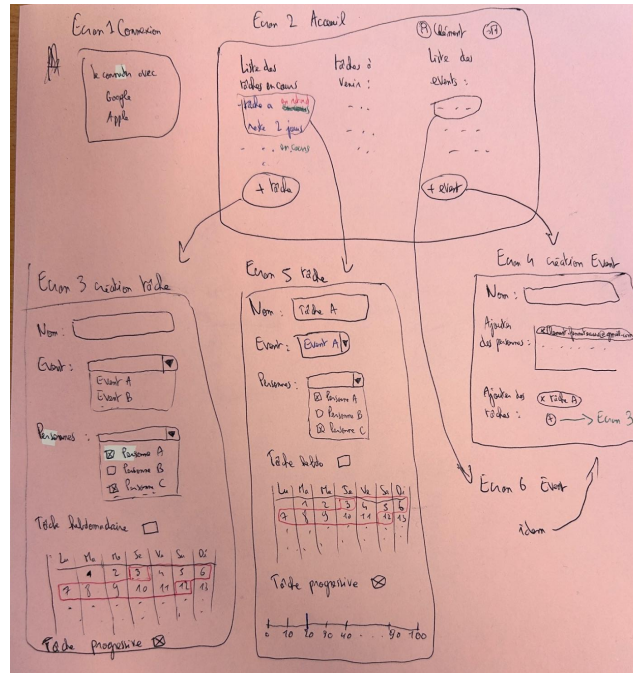 Ecran 1 Connexion
Se connecter avec
Google
Apple
Ecran 2 Accueil
Clément
Liste des
tâches en cours
tâche a en retard
reste 2 jours
en cours
+ tâche
tâches à
venir :
Liste des
events :
+ event
Ecran 3 création tâche
Nom :
Event :
Event A
Event B
Personnes :
Personne A
Personne B
Personne C
Tâche hebdomadaire
Lu Ma Me Je Ve Sa Di
1 2 3 4 5 6
7 8 9 10 11 12 13
Tâche progressive
Ecran 5 tâche
Nom : Tâche A
Event : Event A
Personnes :
Personne A
Personne B
Personne C
Tâche hebdo
Lu Ma Me Je Ve Sa Di
1 2 3 4 5 6
7 8 9 10 11 12 13
Tâche progressive
0 10 20 30 40 . . . 90 100
Ecran 4 création Event
Nom :
Ajouter
des personnes :
Ajouter des
tâches :
x Tâche A
+ → Ecran 3
Ecran 6 Event
idem